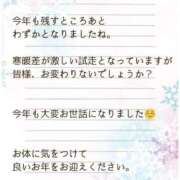 今年も残すところあと
わずかとなりましたね。
寒暖差が激しい試走となっていますが
皆様、お変わりないでしょうか？
今年も大変お世話になりました☺️
お体に気をつけて
良いお年をお迎えください。